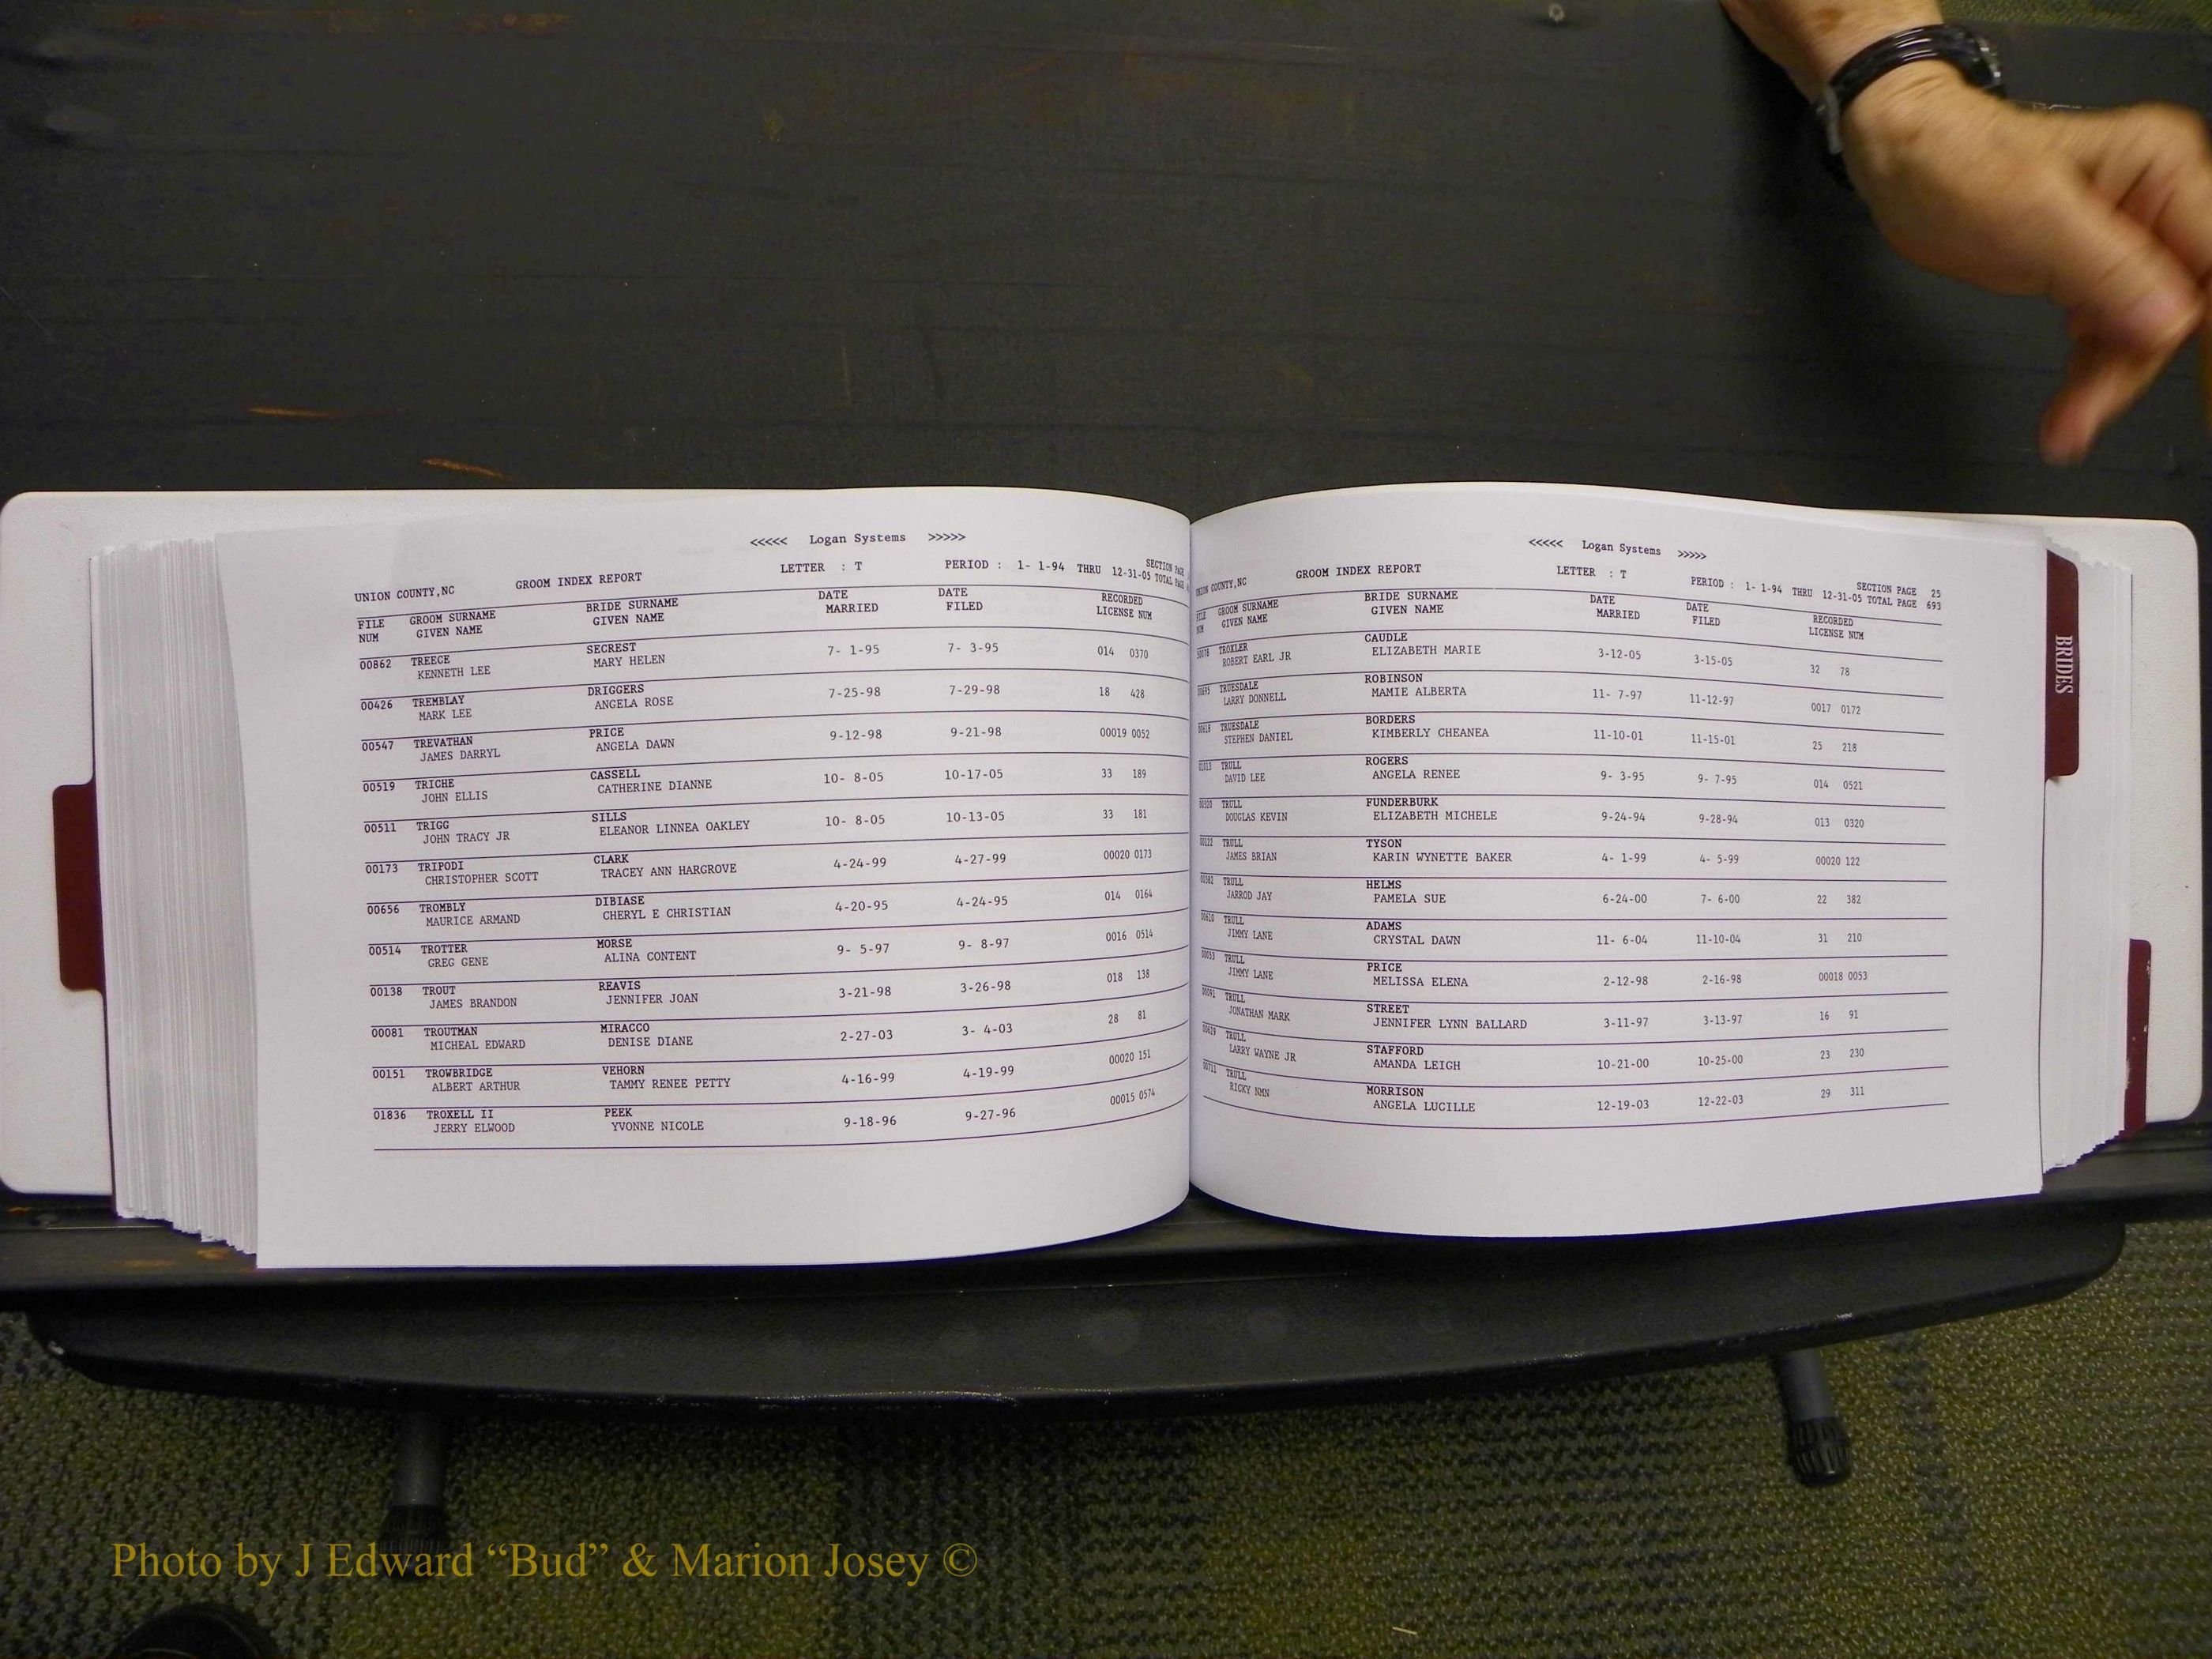 <<<<< Logan Systems >>>>>
UNION COUNTY,NC GROOM INDEX REPORT LETTER : T PERIOD : 1- 1-94 THRU 12-31-05 SECTION PAGE
TOTAL PAGE
FILE GROOM SURNAME BRIDE SURNAME DATE DATE RECORDED
NUM GIVEN NAME GIVEN NAME MARRIED FILED LICENSE NUM
00862 TREECE SECREST 7- 1-95 7- 3-95 014 0370
KENNETH LEE MARY HELEN
00426 TREMBLAY DRIGGERS 7-25-98 7-29-98 18 428
MARK LEE ANGELA ROSE
00547 TREVATHAN PRICE 9-12-98 9-21-98 00019 0052
JAMES DARRYL ANGELA DAWN
00519 TRICHE CASSELL 10- 8-05 10-17-05 33 189
JOHN ELLIS CATHERINE DIANNE
00511 TRIGG SILLS 10- 8-05 10-13-05 33 181
JOHN TRACY JR ELEANOR LINNEA OAKLEY
00173 TRIPODI CLARK 4-24-99 4-27-99 00020 0173
CHRISTOPHER SCOTT TRACEY ANN HARGROVE
00656 TROMBLY DIBIASE 4-20-95 4-24-95 014 0164
MAURICE ARMAND CHERYL E CHRISTIAN
00514 TROTTER MORSE 9- 5-97 9- 8-97 0016 0514
GREG GENE ALINA CONTENT
00138 TROUT REAVIS 3-21-98 3-26-98 018 138
JAMES BRANDON JENNIFER JOAN
00081 TROUTMAN MIRACCO 2-27-03 3- 4-03 28 81
MICHEAL EDWARD DENISE DIANE
00151 TROWBRIDGE VEHORN 4-16-99 4-19-99 00020 151
ALBERT ARTHUR TAMMY RENEE PETTY
01836 TROXELL II PEEK 9-18-96 9-27-96 00015 0574
JERRY ELWOOD YVONNE NICOLE
<<<<< Logan Systems >>>>>
UNION COUNTY,NC GROOM INDEX REPORT LETTER : T PERIOD : 1- 1-94 THRU 12-31-05 SECTION PAGE 25
TOTAL PAGE 693
FILE GROOM SURNAME BRIDE SURNAME DATE DATE RECORDED
NUM GIVEN NAME GIVEN NAME MARRIED FILED LICENSE NUM
TROXLER CAUDLE 3-12-05 3-15-05 32 78
ROBERT EARL JR ELIZABETH MARIE
TRUESDALE ROBINSON 11- 7-97 11-12-97 0017 0172
LARRY DONNELL MAMIE ALBERTA
TRUESDALE BORDERS 11-10-01 11-15-01 25 218
STEPHEN DANIEL KIMBERLY CHEANEA
TRULL ROGERS 9- 3-95 9- 7-95 014 0521
DAVID LEE ANGELA RENEE
TRULL FUNDERBURK 9-24-94 9-28-94 013 0320
DOUGLAS KEVIN ELIZABETH MICHELE
TRULL TYSON 4- 1-99 4- 5-99 00020 122
JAMES BRIAN KARIN WYNETTE BAKER
TRULL HELMS 6-24-00 7- 6-00 22 382
JARROD JAY PAMELA SUE
TRULL ADAMS 11- 6-04 11-10-04 31 210
JIMMY LANE CRYSTAL DAWN
TRULL PRICE 2-12-98 2-16-98 00018 0053
JIMMY LANE MELISSA ELENA
TRULL STREET 3-11-97 3-13-97 16 91
JONATHAN MARK JENNIFER LYNN BALLARD
TRULL STAFFORD 10-21-00 10-25-00 23 230
LARRY WAYNE JR AMANDA LEIGH
TRULL MORRISON 12-19-03 12-22-03 29 311
RICKY NMN ANGELA LUCILLE
BRIDES
Photo by J Edward “Bud” & Marion Josey ©